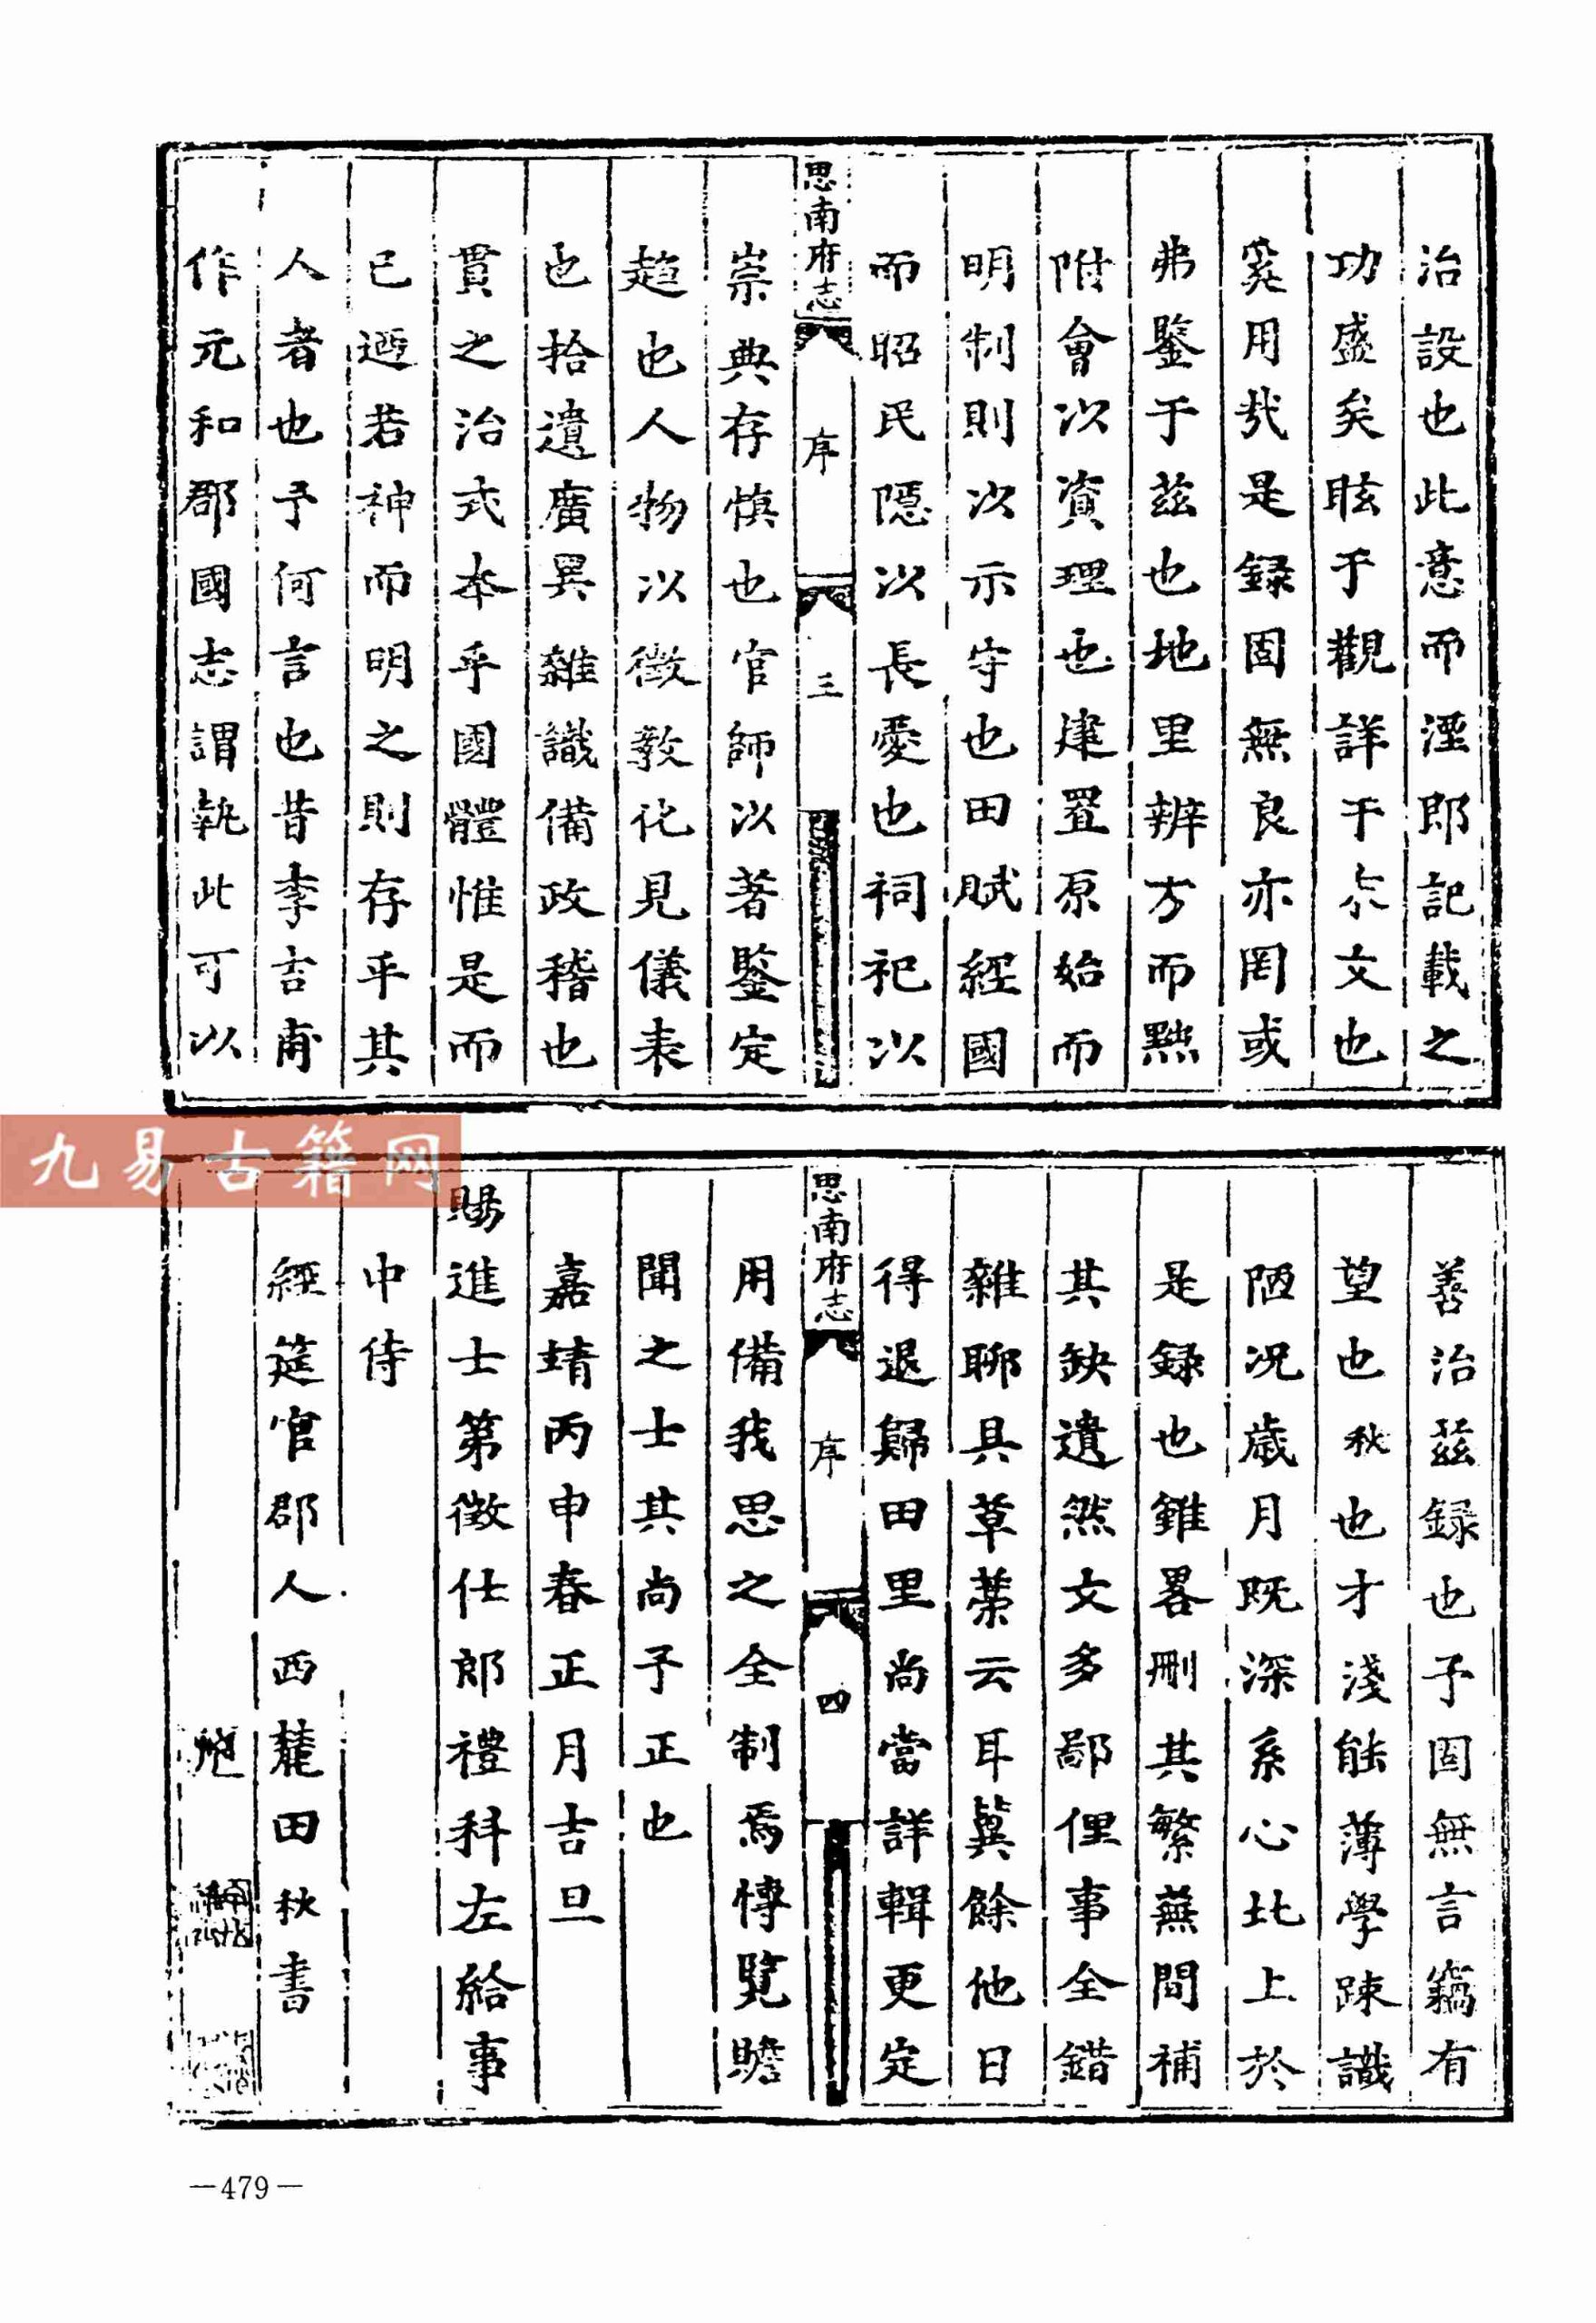 治設也此意而湮郎記載之
功盛矣眩于觀詳于尒文也
奚用㢤是録固無良亦罔或
弗鑒于茲也地里辨方而黜
附會以資理也建置原始而
明制則以示守也田賦經國
而昭民隱以長愛也祠祀以
思南府志
序
三
崇典存慎也官師以著鑒定
趨也人物以徵教化見儀表
也拾遺廣異雜識備政稽也
貫之治式本乎國體惟是而
已廼若神而明之則存乎其
人者也予何言也昔李吉甫
作元和郡國志謂執此可以
善治茲録也予固無言竊有
望也秋也才淺能薄學踈識
陋况歲月既深系心北上於
是録也雖畧刪其繁蕪間補
其缺遺然文多鄙俚事全錯
雜聊具草藁云耳冀餘他日
得退歸田里尚當詳輯更定
思南府志
序
四
用備我思之全制焉愽覽瞻
聞之士其尚予正也
嘉靖丙申春正月吉旦
賜進士第徵仕郎禮科左給事
中侍
經筵官郡人西麓田秋書
九易古籍网
—479—